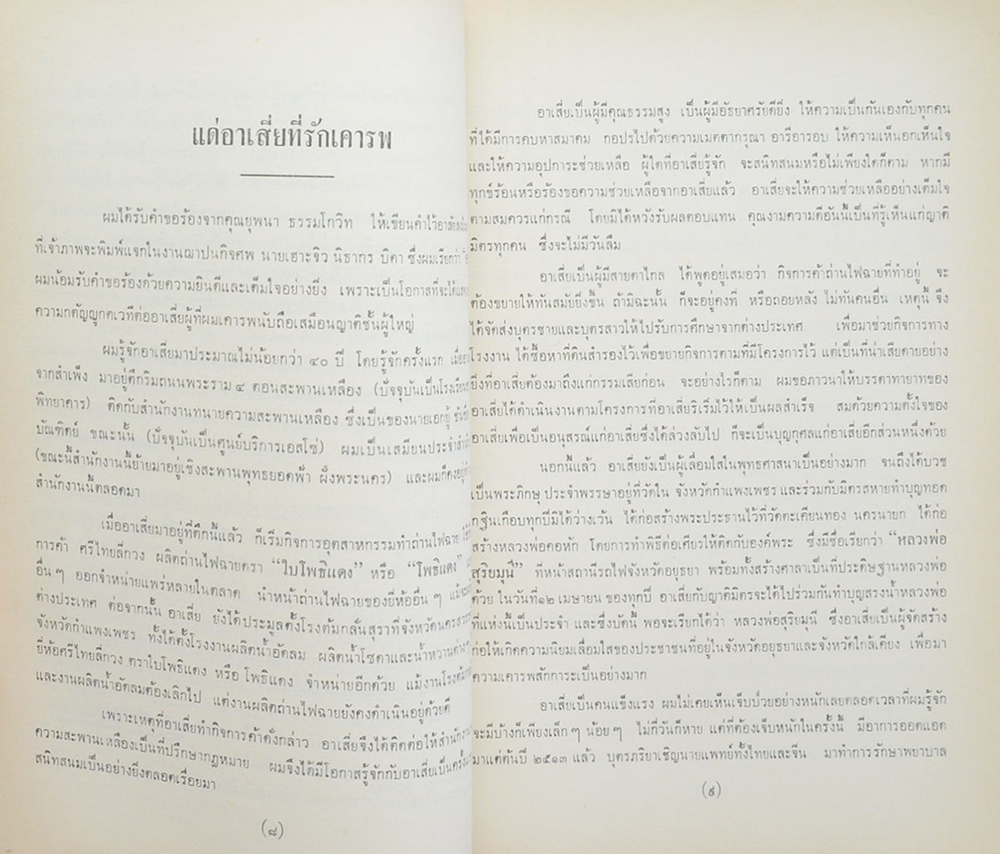 แด่อาเสี่ยที่รักเคารพ
ผมได้รับคำขอร้องจากคุณยุพนา ธรรมโกวิท ให้เขียนคำไว้อาลัย
ที่เจ้าภาพจะพิมพ์แจกในงานฌาปนกิจศพ นายเฮาะจิว นิธากร บิดา ซึ่งผมเรียกว่า
ผมน้อมรับคำขอร้องด้วยความยินดีและเต็มใจอย่างยิ่ง เพราะเป็นโอกาสที่จะได้
ความกตัญญูกตเวทีต่ออาเสี่ยผู้ที่ผมเคารพนับถือเสมือนญาติชั้นผู้ใหญ่
ผมรู้จักอาเสี่ยมาประมาณไม่น้อยกว่า ๔๐ ปี โดยรู้จักครั้งแรก
จากสำเพ็ง มาอยู่ตึกริมถนนพระราม ๔ ตอนสะพานเหลือง (ปัจจุบันเป็นโรงเรียน
พิทยาคาร) ติดกับสำนักงานทนายความสะพานเหลือง ซึ่งเป็นของนายเอกยู่
บัณฑิตย์ ขณะนั้น (ปัจจุบันเป็นศูนย์บริการเอสโซ่) ผมเป็นเสมียนประจำ
(ขณะนี้สำนักงานนี้ย้ายมาอยู่เชิงสะพานพุทธยอดฟ้า ฝั่งพระนคร) และผมก็คงอยู่
สำนักงานนี้ตลอดมา
เมื่ออาเสี่ยมาอยู่ที่ตึกนี้แล้ว ก็เริ่มกิจการอุตสาหกรรมทำถ่านไฟฉาย
การค้า ศรีไทยลี่กวง ผลิตถ่านไฟฉายตรา "ใบโพธิ์แดง" หรือ "โพธิ์แดง"
อื่น ๆ ออกจำหน่ายแพร่หลายในตลาด นำหน้าถ่านไฟฉายของยี่ห้ออื่น ๆ
ต่างประเทศ ต่อจากนั้น อาเสี่ย ยังได้ประมูลตั้งโรงต้มกลั่นสุราที่จังหวัด
จังหวัดกำแพงเพชร ทั้งได้ตั้งโรงงานผลิตน้ำอัดลม ผลิตน้ำโซดาและน้ำหวาน
ยี่ห้อศรีไทยลี่กวง ตราใบโพธิ์แดง หรือ โพธิ์แดง จำหน่ายอีกด้วย แม้งานโรงต้ม
และงานผลิตน้ำอัดลมต้องเลิกไป แต่งานผลิตถ่านไฟฉายยังคงดำเนินอยู่ด้วยดี
เพราะเหตุที่อาเสี่ยทำกิจการค้าดังกล่าว อาเสี่ยจึงได้ติดต่อให้สำนักงาน
ความสะพานเหลืองเป็นที่ปรึกษากฎหมาย ผมจึงได้มีโอกาสรู้จักกับอาเสี่ยเป็นครั้ง
สนิทสนมเป็นอย่างยิ่งตลอดเรื่อยมา
(๘)
อาเสี่ยเป็นผู้มีคุณธรรมสูง เป็นผู้มีอัธยาศรัยดียิ่ง ให้ความเป็นกันเองกับทุกคน
ที่ได้มีการคบหาสมาคม กอปรไปด้วยความเมตตากรุณา อารีอารอบ ให้ความเห็นอกเห็นใจ
และให้ความอุปการะช่วยเหลือ ผู้ใดที่อาเสี่ยรู้จัก จะสนิทสนมหรือไม่เพียงใดก็ตาม หากมี
ทุกข์ร้อนหรือร้องขอความช่วยเหลือจากอาเสี่ยแล้ว อาเสี่ยจะให้ความช่วยเหลืออย่างเต็มใจ
ตามสมควรแก่กรณี โดยมิได้หวังรับผลตอบแทน คุณงามความดีอันนี้เป็นที่รู้เห็นแก่ญาติ
มิตรทุกคน ซึ่งจะไม่มีวันลืม
อาเสี่ยเป็นผู้มีสายตาไกล ได้พูดอยู่เสมอว่า กิจการค้าถ่านไฟฉายที่ทำอยู่ จะ
ต้องขยายให้ทันสมัยยิ่งขึ้น ถ้ามิฉะนั้น ก็จะอยู่คงที่ หรือถอยหลัง ไม่ทันคนอื่น เหตุนี้ จึง
ได้จัดส่งบุตรชายและบุตรสาวให้ไปรับการศึกษาจากต่างประเทศ เพื่อมาช่วยกิจการทาง
โรงงาน ได้ซื้อหาที่ดินสำรองไว้เพื่อขยายกิจการตามที่มีโครงการไว้ แต่เป็นที่น่าเสียดายอย่าง
ยิ่งที่อาเสี่ยต้องมาถึงแก่กรรมเสียก่อน จะอย่างไรก็ตาม ผมขอภาวนาให้บรรดาทายาทของ
อาเสี่ยได้ดำเนินงานตามโครงการที่อาเสี่ยริเริ่มไว้ให้เป็นผลสำเร็จ สมด้วยความตั้งใจของ
อาเสี่ยเพื่อเป็นอนุสรณ์แก่อาเสี่ยซึ่งได้ล่วงลับไป ก็จะเป็นบุญกุศลแก่อาเสี่ยอีกส่วนหนึ่งด้วย
นอกนี้แล้ว อาเสี่ยยังเป็นผู้เลื่อมใสในพุทธศาสนาเป็นอย่างมาก จนถึงได้บวช
เป็นพระภิกษุ ประจำพรรษาอยู่ที่วัดใน จังหวัดกำแพงเพชร และร่วมกับมิตรสหายทำบุญทอด
กฐินเกือบทุกปีมิได้ว่างเว้น ได้ก่อสร้างพระประธานไว้ที่วัดตะเคียนทอง นครนายก ได้ก่อ
สร้างหลวงพ่อคอหัก โดยการทำพิธีต่อเศียรให้ติดกับองค์พระ ซึ่งมีชื่อเรียกว่า "หลวงพ่อ
สุริยมุนี" ที่หน้าสถานีรถไฟจังหวัดอยุธยา พร้อมทั้งสร้างศาลาเป็นที่ประดิษฐานหลวงพ่อ
ด้วย ในวันที่ ๑๒ เมษายน ของทุกปี อาเสี่ยกับญาติมิตรจะได้ไปร่วมกันทำบุญสรงน้ำหลวงพ่อ
ที่แห่งนี้เป็นประจำ และซึ่งบัดนี้ พอจะเรียกได้ว่า หลวงพ่อสุริยมุนี ซึ่งอาเสี่ยเป็นผู้จัดสร้าง
ก่อให้เกิดความนิยมเลื่อมใสของประชาชนที่อยู่ในจังหวัดอยุธยาและจังหวัดใกล้เคียง เพื่อมา
ความเคารพสักการะเป็นอย่างมาก
อาเสี่ยเป็นคนแข็งแรง ผมไม่เคยเห็นเจ็บป่วยอย่างหนักเลยตลอดเวลาที่ผมรู้จัก
จะมีบ้างก็เพียงเล็ก ๆ น้อย ๆ ไม่กี่วันก็หาย แต่ที่ต้องเจ็บหนักในครั้งนี้ มีอาการออดแอด
มาแต่ต้นปี ๒๕๑๓ แล้ว บุตรภริยาเชิญนายแพทย์ทั้งไทยและจีน มาทำการรักษาพยาบาล
(๙)